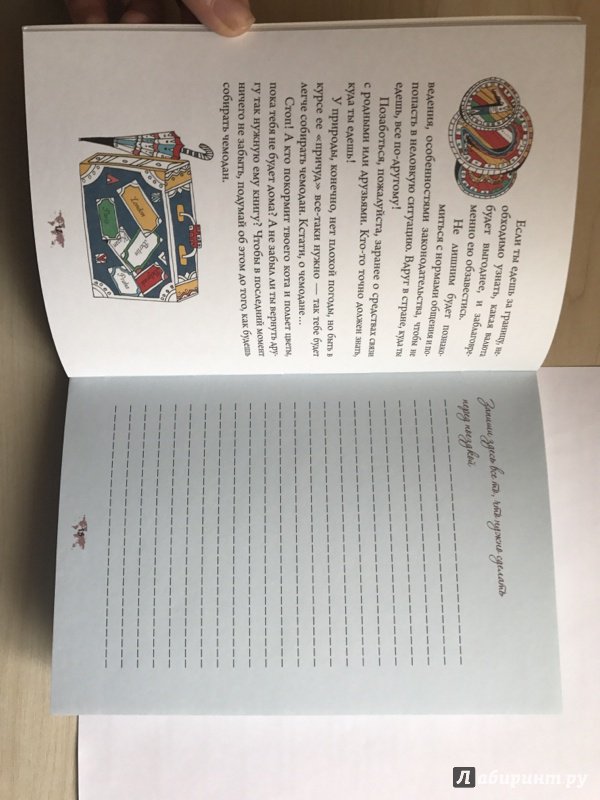 Если ты едешь за границу, не-
обходимо узнать, какая валюта
будет выгоднее, и заблаговре-
менно ею обзавестись.
Не лишним будет познако-
миться с нормами общения и по-
ведения, особенностями законодательства, чтобы не
попасть в неловкую ситуацию. Вдруг в стране, куда ты
едешь, все по-другому!
Позаботься, пожалуйста, заранее о средствах связи
с родными или друзьями. Кто-то точно должен знать,
куда ты едешь!
У природы, конечно, нет плохой погоды, но быть в
курсе ее «причуд» все-таки нужно — так тебе будет
легче собирать чемодан. Кстати, о чемодане…
Стоп! А кто покормит твоего кота и польет цветы,
пока тебя не будет дома? А не забыл ли ты вернуть дру-
гу так нужную ему книгу? Чтобы в последний момент
ничего не забыть, подумай об этом до того, как будешь
собирать чемодан.
London
Paris
Berlin
14
Запиши здесь все то, что нужно сделать
перед поездкой.
15
Лабиринт.ру